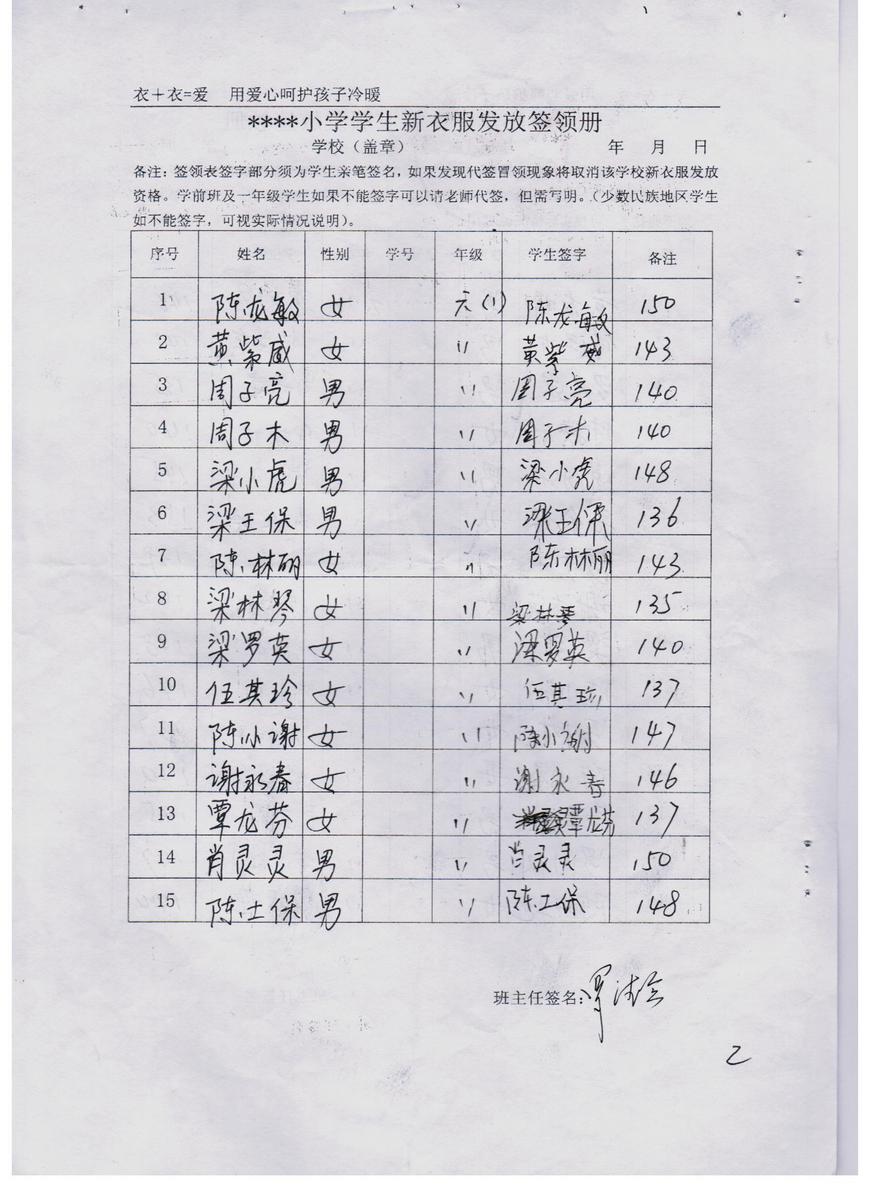 衣＋衣=爱 用爱心呵护孩子冷暖
****小学学生新衣服发放签领册
学校（盖章） 年 月 日
备注：签领表签字部分须为学生亲笔签名，如果发现代签冒领现象将取消该学校新衣服发放
资格。学前班及一年级学生如果不能签字可以请老师代签，但需写明。（少数民族地区学生
如不能签字，可视实际情况说明）。
序号 姓名 性别 学号 年级 学生签字 备注
1 陈龙敏 女 (1) 陈龙敏 150
2 黄紫威 女 〃 黄紫威 143
3 周子亮 男 〃 周子亮 140
4 周子木 男 〃 周子木 140
5 梁小虎 男 〃 梁小虎 148
6 梁王保 男 〃 梁王保 136
7 陈林丽 女 〃 陈林丽 143
8 梁林琴 女 〃 梁林琴 135
9 梁罗英 女 〃 梁罗英 140
10 伍其珍 女 〃 伍其珍 137
11 陈小谢 女 〃 陈小谢 147
12 谢永春 女 〃 谢永春 146
13 覃龙芬 女 〃 覃龙芬 137
14 肖灵灵 男 〃 肖灵灵 150
15 陈士保 男 〃 陈工保 148
班主任签名：
2